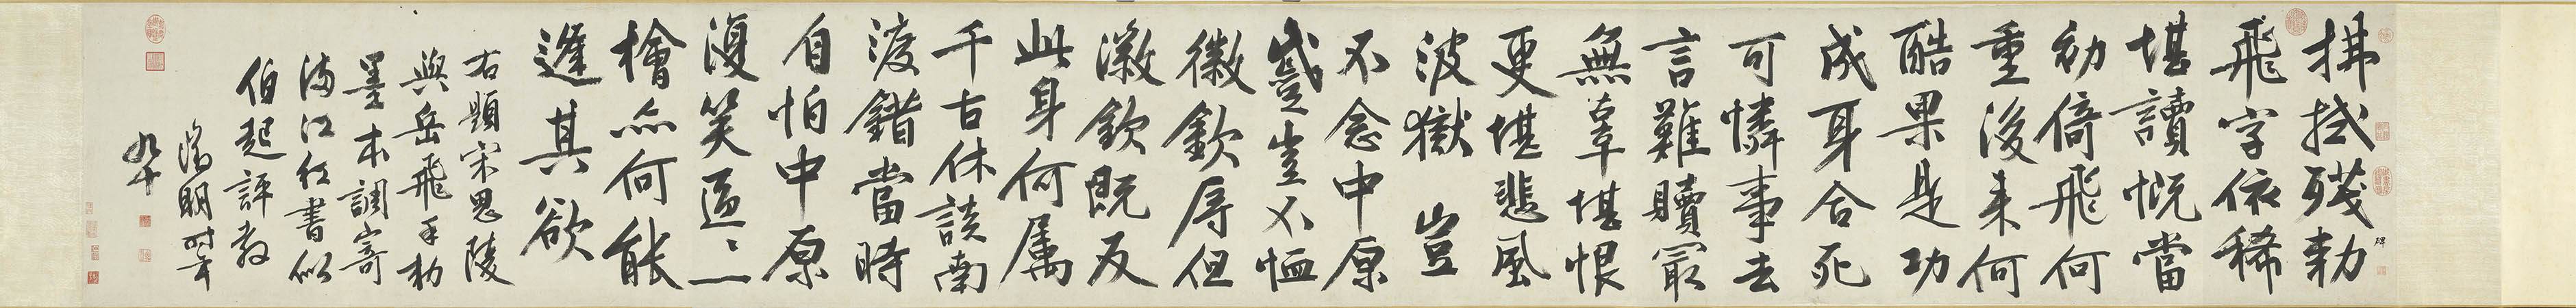 拂拭殘勅碑
飛字依稀
堪讀慨當
初倚飛何
重後来何
酷果是功
成身合死
可憐事去
言難贖最
無辜堪恨
更堪悲風
波獄 豈
不念中原
蹙豈不恤
徽欽辱但
徽欽既反
此身何属
千古休談南
渡錯當時
自怕中原
復笑區〻一
檜亦何能
逢其欲
右題宋思陵
與岳飛手勅
墨本調寄
滿江紅書似
伯起評教
徵明時年
九十